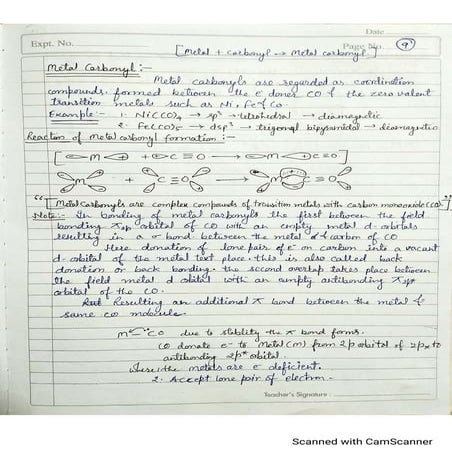 Date
Expt. No.
Page No. 9
[Metal + carbonyl → Metal carbonyl]
Metal Carbonyl :-
Metal carbonyls are regarded as coordination
compounds, formed between the e⁻ doner CO & the zero valent
transition metals such as Ni, Fe & Co.
Example :- 1. Ni(CO)4 → sp³ → tetrahedral → diamagnetic
2. Fe(CO)5 → dsp³ → trigonal bipyramidal → diamagnetic
Reaction of metal carbonyl formation :-
M + C≡O → M C≡O]
M + C≡O → M C≡O
"[Metal carbonyls are complex compounds of transition metals with carbon monoxide (CO)]"
Note :- In bonding of metal carbonyls the first between the field
bonding πsp orbital of CO with an empty metal d-orbitals
resulting in a σ bond between the metal & carbon of CO
Here donation of lone pair of e⁻ on carbon into a vacant
d-orbital of the metal text place. this is also called back
donation or back bonding. the second overlap takes place between
the field metal d orbital with an empty antibonding π*sp
orbital of the CO.
Resulting an additional π bond between the metal &
same co molecule.
M CO due to stability the π bond forms.
CO donate e⁻ to Metal (M) from 2p orbital of 2px to
antibonding 2p* orbital.
where, the metals are e⁻ deficient.
2. Accept lone pair of electron -
Teacher's Signature :
Scanned with CamScanner